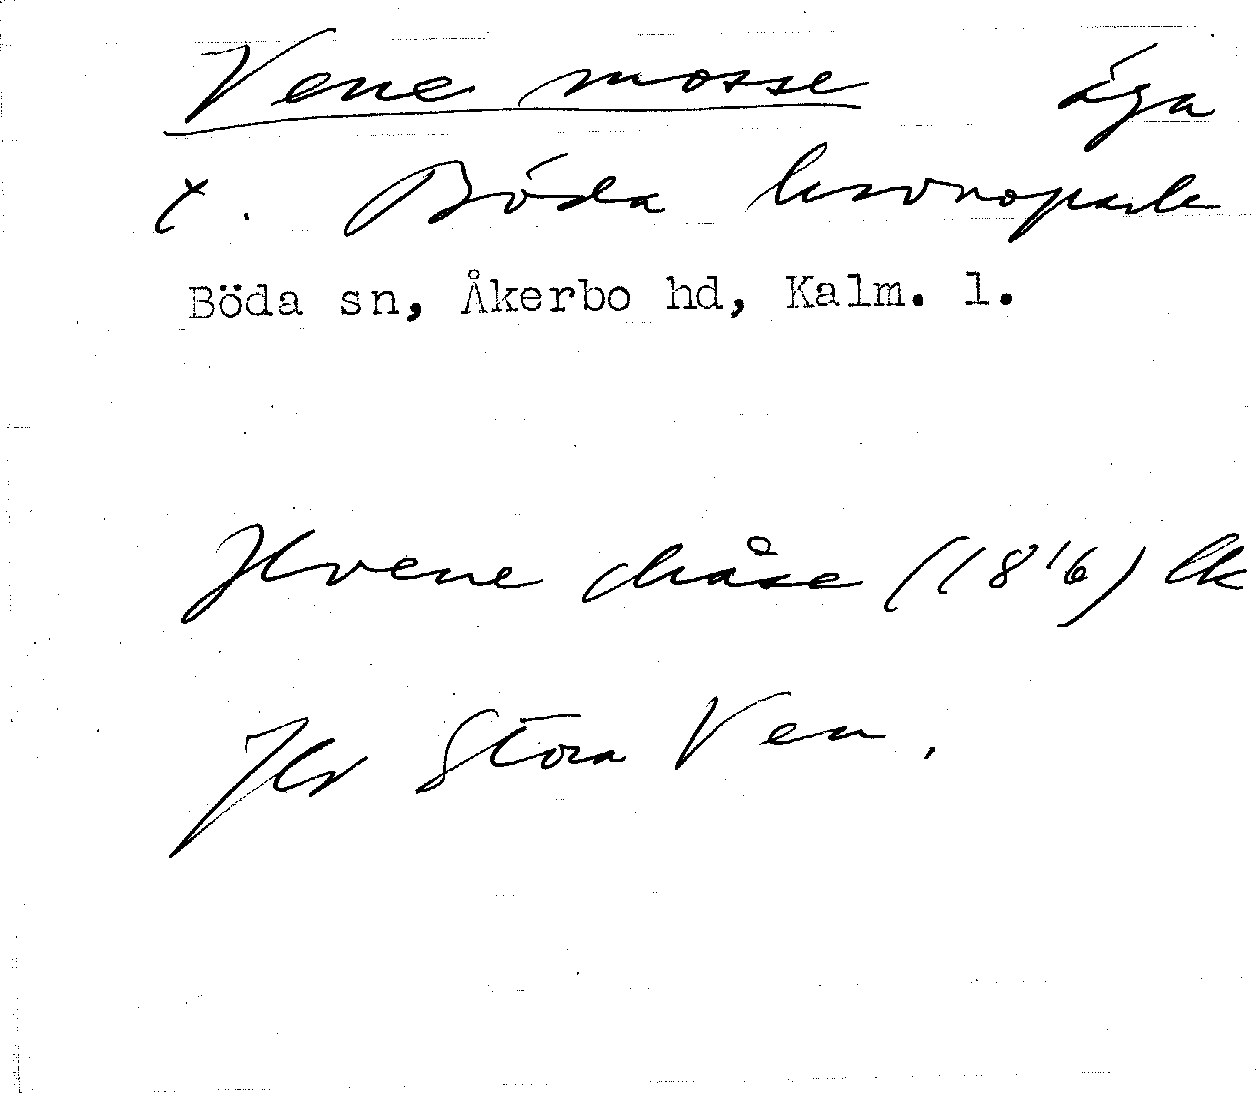 Vene mosse äga
x. Böda kronopark
Böda sn, Åkerbo hd, Kalm. l.
Hvene måse (18'6) lk
Jfr Stora Ven.